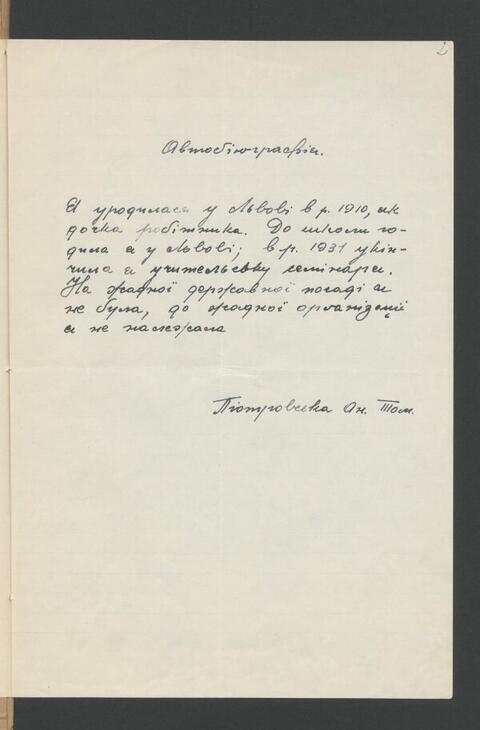 2
Автобіографія.
Я уродилася у Львові в р. 1910, як
дочка робітника. До школи хо-
дила я у Львові; в р. 1931 укін-
чила я учительську семінарію.
На жадної державної посаді я
не була, до жадної организації
я не належала
Піотровська Ан. Том.